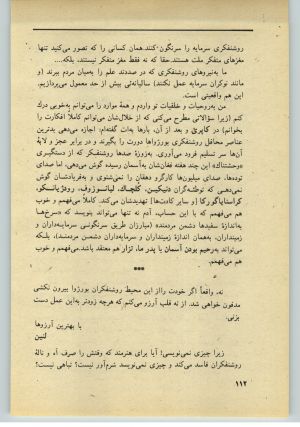 روشنفکری سرمایه را سرنگون کنند. همان کسانی را که تصور می‌کنید تنها
مغزهای متفکر ملت هستند. حقا که نه فقط مغز متفکر نیستند، بلکه....
ما به‌نیروهای روشنفکری که در صددند علم را به‌میان مردم ببرند (و
مانند نوکران سرمایه عمل نکنند) سالیانه‌ئی بیش از حد معمول می‌پردازیم.
این هم واقعیتی است.
من به‌روحیات و خلقیات تو واردم و همهٔ موارد را می‌توانم به‌خوبی درک
کنم (زیرا سؤالاتی مطرح می‌کنی که از خلال‌شان می‌توانم کاملا افکارت را
بخوانم) در کاپری و بعد از آن، بارها به‌ات گفته‌ام: اجازه می‌دهی بدترین
عناصر محافل روشنفکری بورژوا دورت را بگیرند و در برابر عجز و لابهٔ
آن‌ها سر تسلیم فرود می‌آوری. به‌زوزهٔ صدها روشنفکر که از دستگیری
«وحشتناک» این چند هفته فغان‌شان به‌آسمان رسیده گوش می‌دهی، اما صدای
توده‌ها، صدای میلیون‌ها کارگر و دهقان را نمی‌شنوی و به‌فریادشان گوش
نمی‌دهی که توطئه‌گران دنیکین، کلچاک، لیانسوزوف، رودزیانسکو،
کراسنایاگورکا [و سایر کادت‌ها] تهدیدشان می‌کند. کاملا می‌فهمم و خوب
هم می‌فهمم که با این حساب، آدم نه تنها می‌تواند بنویسد که «سرخ‌ها
به‌اندازهٔ سفیدها دشمن مردمند» (مبارزان طریق سرنگونی سرمایه‌داران و
زمینداران، به‌همان اندازهٔ زمینداران و سرمایه‌داران دشمن مردمند)، بلکه
می‌تواند به‌رحیم بودن آسمان یا پدر ما، تزار هم معتقد باشد. می‌فهمم و خوب
هم می‌فهمم.
***
نه. واقعاً اگر خودت را از این محیط روشنفکران بورژوا بیرون نکشی
مدفون خواهی شد. از ته قلب آرزو می‌کنم که هرچه زودتر به‌این عمل دست
بزنی.
با بهترین آرزوها
لنین
زیرا چیزی نمی‌نویسی! آیا برای هنرمند که وقتش را صرف آه و نالهٔ
روشنفکران فاسد می‌کند و چیزی نمی‌نویسد شرم‌آور نیست؟ تباهی نیست؟
۱۱۲